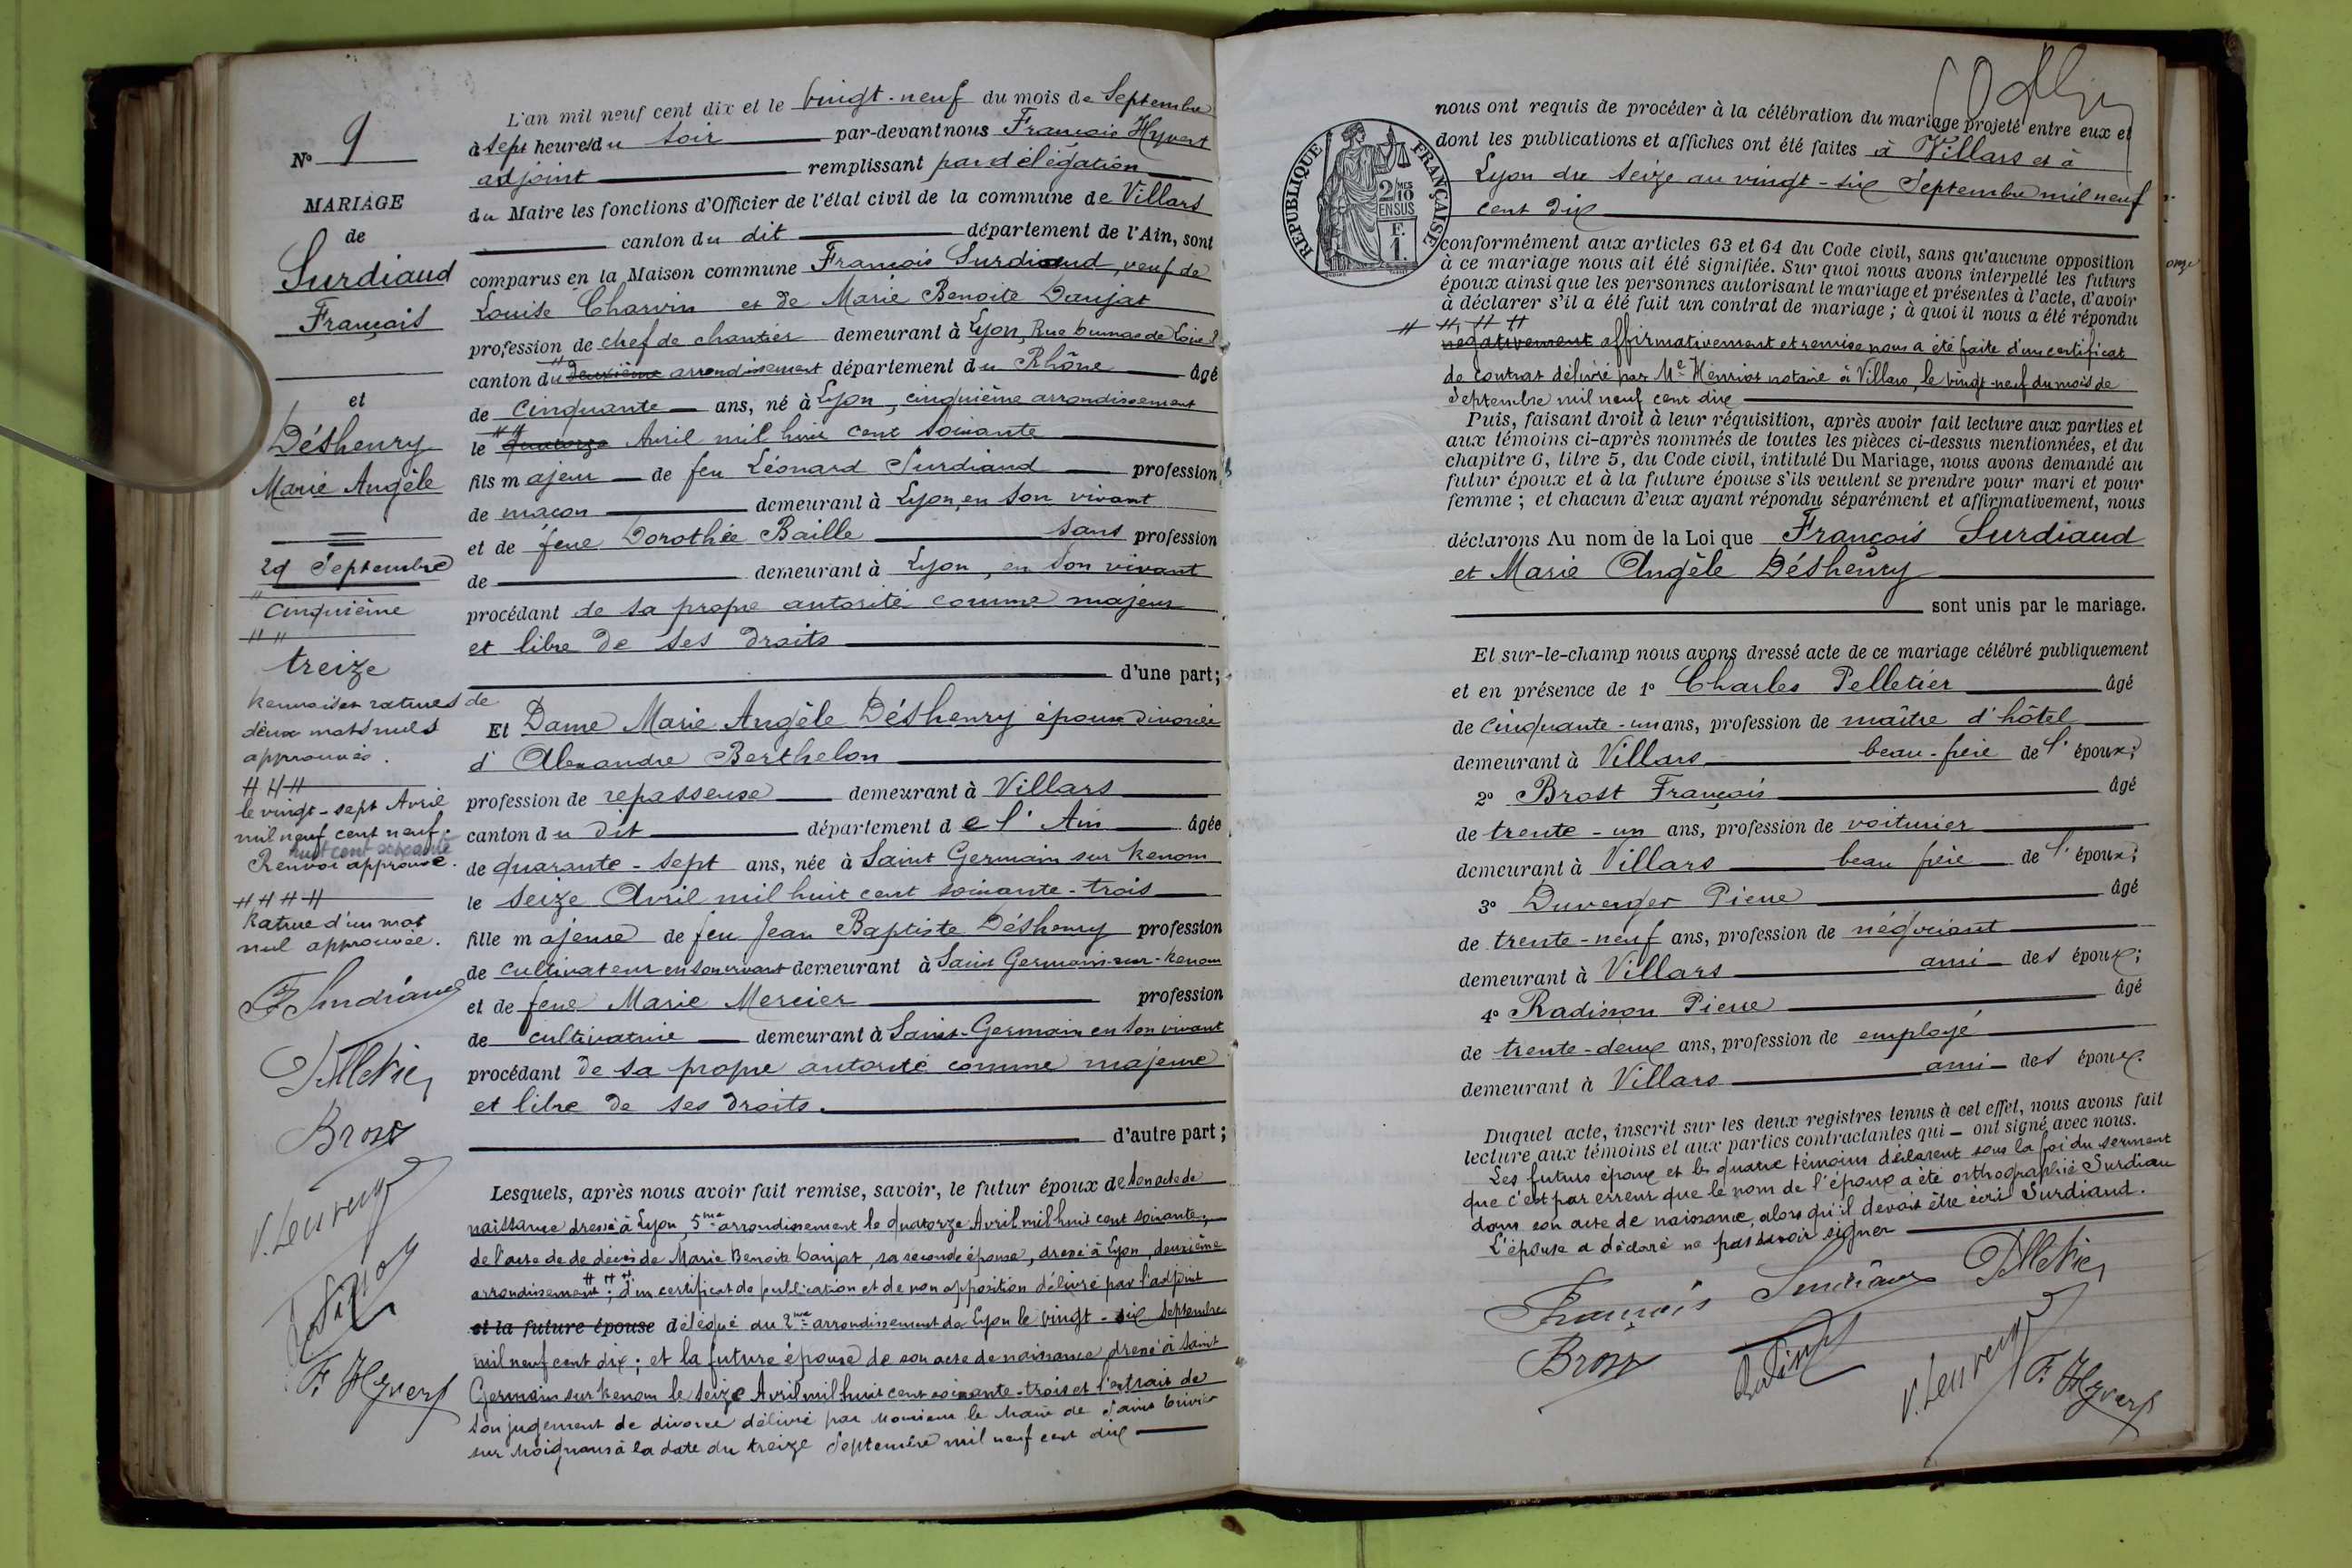 N° 9
MARIAGE
de
Surdiaud
François
et
Déshenry
Marie Angèle
29 Septembre
" cinquième
" "
treize
Renvois et ratures de
deux mots nuls
approuvés.
H H H
le vingt-sept Avril
mil neuf cent neuf.
huit cent soixante
Renvoi approuvé.
H H H H
Rature d'un mot
nul approuvée.
F Surdiaud
Pelletier
Brost
F. Hyvert
L'an mil neuf cent dix et le vingt-neuf du mois de Septembre
à sept heures du soir par-devant nous François Hyvert
adjoint remplissant par délégation
du Maire les fonctions d'Officier de l'état civil de la commune de Villars
canton du dit département de l'Ain, sont
comparus en la Maison commune François Surdiaud, veuf de
Louise Charvin et de Marie Benoite Daujat
profession de chef de chantier demeurant à Lyon, Rue Dumas de Loire 8
canton du " deuxième arrondissement département du Rhône âgé
de cinquante ans, né à Lyon, cinquième arrondissement
le " " quatorze Avril mil huit cent soixante
fils majeur de feu Léonard Surdiaud profession
de maçon demeurant à Lyon, en son vivant
et de feue Dorothée Baille sans profession
de demeurant à Lyon, en son vivant
procédant de sa propre autorité comme majeur
et libre de ses droits
d'une part;
Et Dame Marie Angèle Déshenry épouse divorcée
d'Alexandre Berthelon
profession de repasseuse demeurant à Villars
canton du dit département de l'Ain âgée
de quarante-sept ans, née à Saint Germain sur Renom
le seize Avril mil huit cent soixante-trois
fille majeure de feu Jean Baptiste Déshenry profession
de cultivateur en son vivant demeurant à Saint Germain-sur-Renom
et de feue Marie Mercier profession
de cultivatrice demeurant à Saint-Germain en son vivant
procédant de sa propre autorité comme majeure
et libre de ses droits.
d'autre part;
Lesquels, après nous avoir fait remise, savoir, le futur époux de son acte de
naissance dressé à Lyon, 5me arrondissement le quatorze Avril mil huit cent soixante,
de l'acte de de décès de Marie Benoite Daujat, sa seconde épouse, dressé à Lyon, deuxième
arrondissement H H H; d'un certificat de publication et de non opposition délivré par l'adjoint
et la future épouse délégué du 2me arrondissement de Lyon le vingt-six Septembre
mil neuf cent dix; et la future épouse de son acte de naissance dressé à Saint
Germain sur Renom le seize Avril mil huit cent soixante-trois et l'extrait de
son jugement de divorce délivré par Monsieur le Maire de Saint Trivier
sur Moignans à la date du treize Septembre mil neuf cent dix
REPUBLIQUE FRANÇAISE
2/10 MES
EN SUS
F.
1.
nous ont requis de procéder à la célébration du mariage projeté entre eux et
dont les publications et affiches ont été faites à Villars et à
Lyon du seize au vingt-six Septembre mil neuf
cent dix
conformément aux articles 63 et 64 du Code civil, sans qu'aucune opposition
à ce mariage nous ait été signifiée. Sur quoi nous avons interpellé les futurs
époux ainsi que les personnes autorisant le mariage et présentes à l'acte, d'avoir
à déclarer s'il a été fait un contrat de mariage; à quoi il nous a été répondu
H H H H
négativement affirmativement et remise nous a été faite d'un certificat
de contrat délivré par Me Henriot notaire à Villars, le vingt-neuf du mois de
Septembre mil neuf cent dix
Puis, faisant droit à leur réquisition, après avoir fait lecture aux parties et
aux témoins ci-après nommés de toutes les pièces ci-dessus mentionnées, et du
chapitre 6, titre 5, du Code civil, intitulé Du Mariage, nous avons demandé au
futur époux et à la future épouse s'ils veulent se prendre pour mari et pour
femme; et chacun d'eux ayant répondu séparément et affirmativement, nous
déclarons Au nom de la Loi que François Surdiaud
et Marie Angèle Déshenry
sont unis par le mariage.
Et sur-le-champ nous avons dressé acte de ce mariage célébré publiquement
et en présence de 1° Charles Pelletier âgé
de cinquante-un ans, profession de maître d'hôtel
demeurant à Villars beau-frère de l'époux;
2° Brost François âgé
de trente-un ans, profession de voiturier
demeurant à Villars beau frère de l'époux;
3° Duverger Pierre âgé
de trente-neuf ans, profession de négociant
demeurant à Villars ami des époux;
4° Radisson Pierre âgé
de trente-deux ans, profession de employé
demeurant à Villars ami des époux.
Duquel acte, inscrit sur les deux registres tenus à cet effet, nous avons fait
lecture aux témoins et aux parties contractantes qui ont signé avec nous.
Les futurs époux et les quatre témoins déclarent sous la foi du serment
que c'est par erreur que le nom de l'époux a été orthographié Surdiau
dans son acte de naissance, alors qu'il devait être écrit Surdiaud.
L'épouse a déclaré ne pas savoir signer
François Surdiaud Pelletier
Brost
F. Hyvert
onze